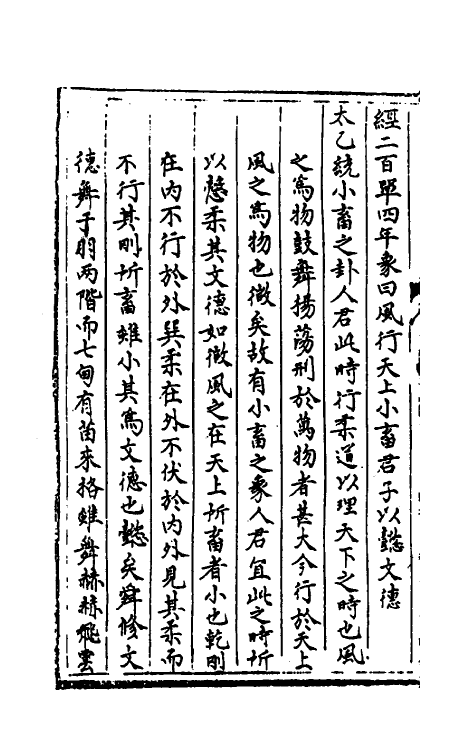 經二百單四年象曰風行天上小畜君子以懿文德
太乙統小畜之卦人君此時行柔道以理天下之時也風
之為物鼓舞揚蕩刑於萬物者甚大今行於天上
風之為物也微矣故有小畜之象人君宜此之時所
以懿柔其文德如微風之在天上所畜者小也乾剛
在內不行於外巽柔在外不伏於內外見其柔而
不行其剛所畜雖小其為文德也懿矣舜修文
德舞于羽兩階而七旬有苗來格雖舞赫赫飛雲